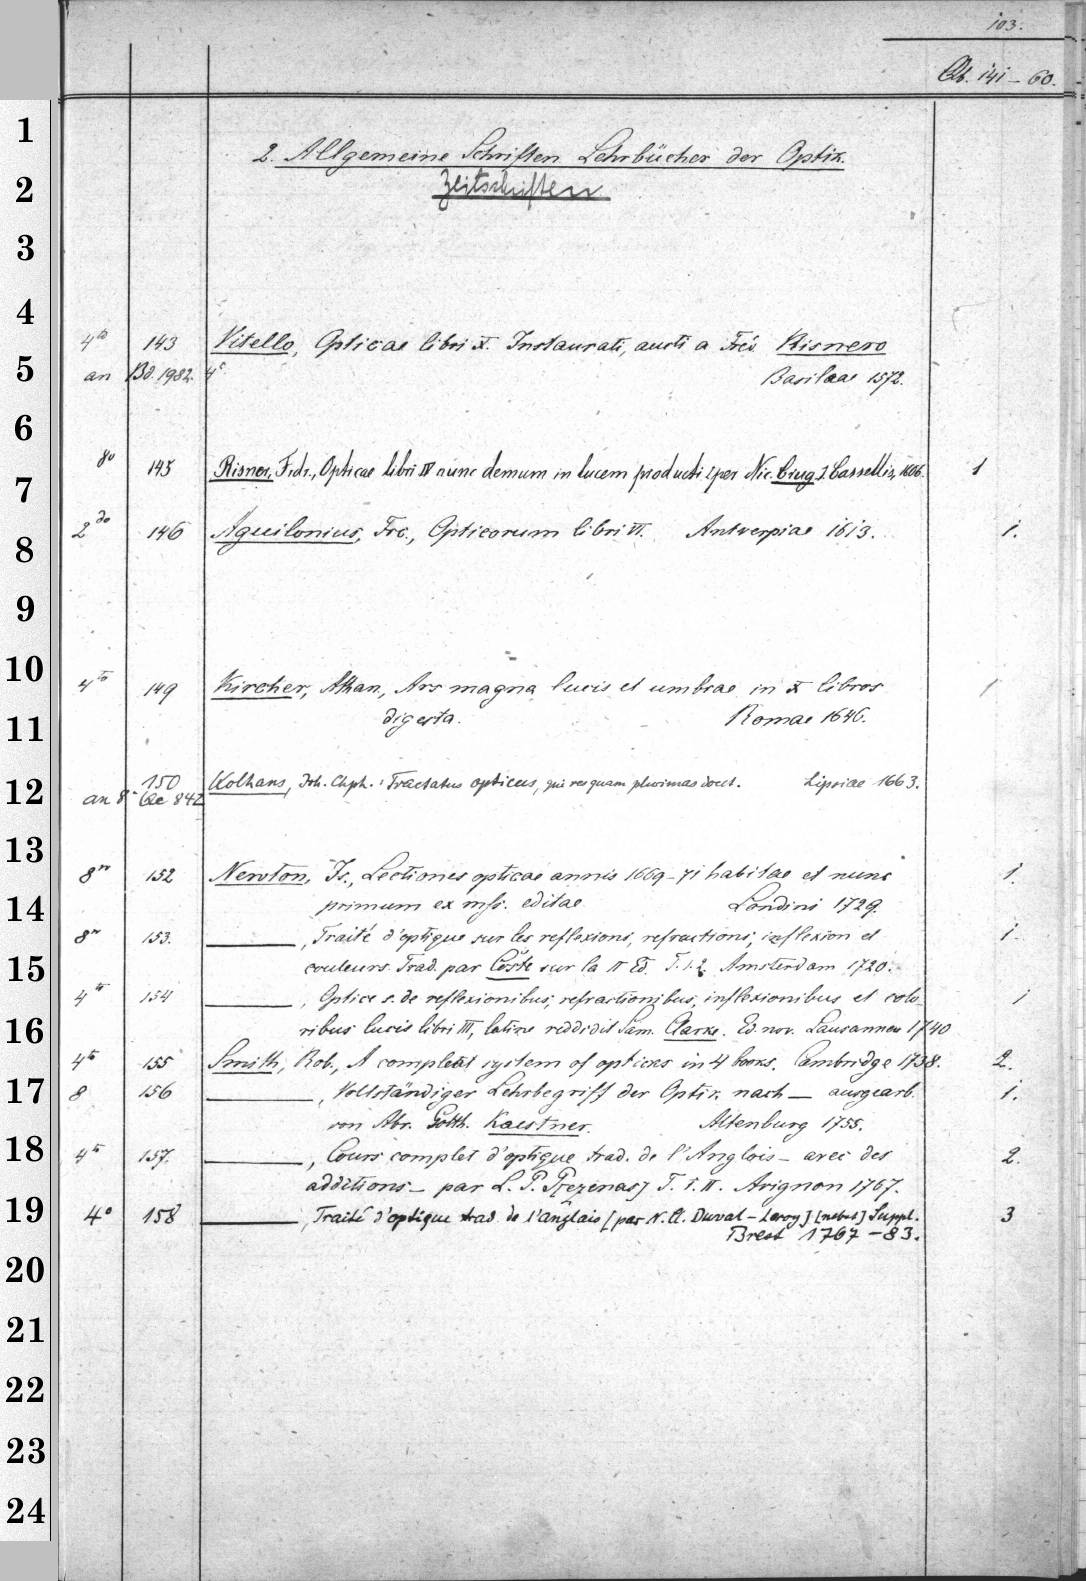 103.
Qb. 141–60.
2. Allgemeine Schriften Lehrbücher der Optik.
Zeitschriften
4to 143 Vitello, Opticae libri X. Instaurati, aucti a Frd. Risnero
an Bd. 1982. 4° Basileae 1572.
8° 145 Risner, Frdr., Opticae libri IV nunc demum in lucem producti [per Nic. Crug]. Cassellis, 1606. 1
2do 146 Aguilonius, Frc., Opticorum libri VI. Antverpiae 1613. 1.
4to 149 Kircher, Athan, Ars magna lucis et umbrae in X libros 1
digesta. Romae 1646.
150 Kolhans, Joh. Chph.: Tractatus opticus, qui res quam plurimas docet. Lipsiae 1663.
an 8° Qe 842
8vo 152 Newton, Is., Lectiones opticae annis 1669–71 habitae et nunc 1.
primum ex mss. editae Londini 1729.
8vo 153. ———, Traité d'optique sur les reflexions, refractions, inflexion et 1.
couleurs. Trad. par Coste sur la II Ed. T. 1.2. Amsterdam 1720.
4to 154 ———, Optice s. de reflexionibus, refractionibus, inflexionibus et colo- 1
ribus lucis libri III, latine reddidit Sam. Clarke. Ed. nov. Lausannae 1740
4to 155 Smith, Rob., A compleat system of opticks in 4 books. Cambridge 1738. 2.
8 156 ———, Vollständiger Lehrbegriff der Optik nach — ausgearb. 1.
von Abr. Gotth. Kaestner. Altenburg 1755.
4to 157. ———, Cours complet d'optique trad. de l'Anglois — avec des 2.
additions — par L. P. Pezenas] T. I. II. Avignon 1767.
4° 158 ———, Traité d'optique trad. de l'anglais [par N. C. Duval-Leroy] [nebst] Suppl. 3
Brest 1767–83.
1
2
3
4
5
6
7
8
9
10
11
12
13
14
15
16
17
18
19
20
21
22
23
24